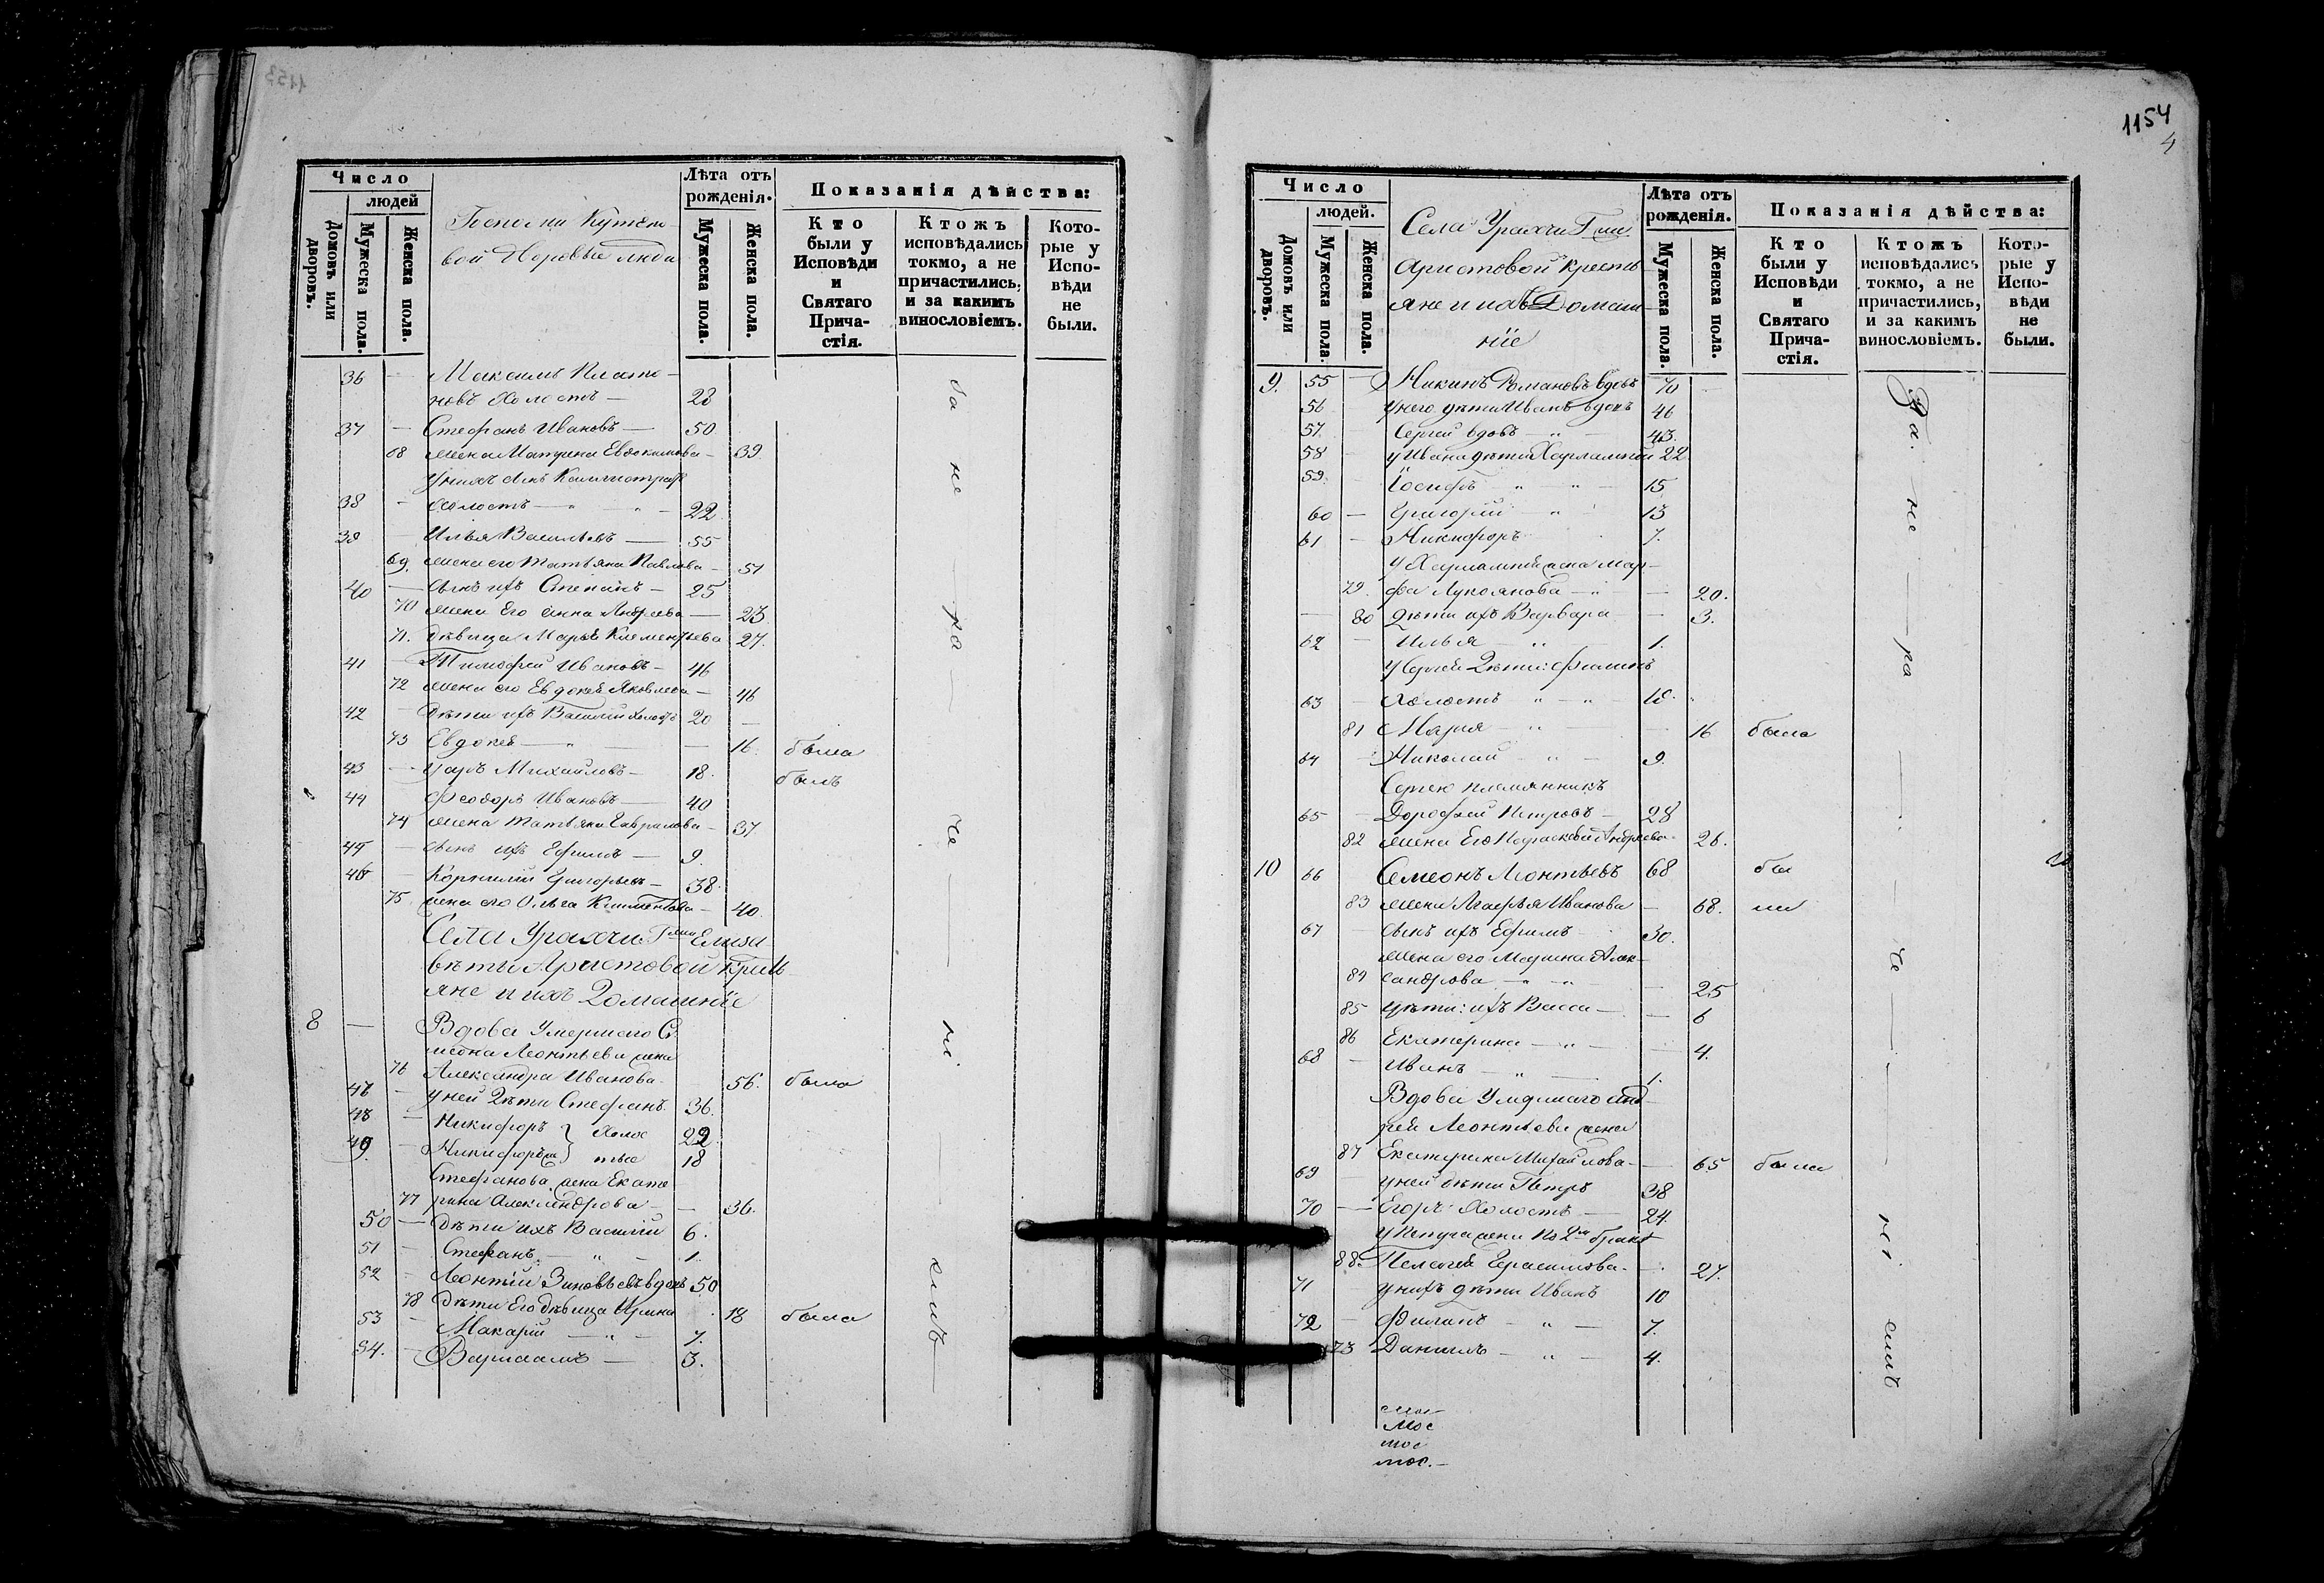 1153
Число
людей
Домовъ или дворовъ.
Мужеска пола.
Женска пола.
Госпожи Кутемо-
вой Дворовые люди
Лѣта отъ рожденія.
Мужеска пола.
Женска пола.
Показанія дѣйства:
Кто были у Исповѣди и Святаго Прича-стія.
Ктожъ исповѣдались токмо, а не причастились, и за какимъ винословіемъ.
Кото-рые у Испо-вѣди не были.
36 — Максимъ Плато-
новъ холостъ — 28
37 — Стефанъ Ивановъ — 50
68 жена Матрена Евдокимова — 39
у нихъ сынъ Каллистратъ
38 — холостъ — „ — „ — 22
39 Илья Васильевъ — 55
69. жена его Татьяна Павлова — 51
40 — сынъ ихъ Степанъ — 25
70 жена Его Анна Андреева — 23
71. дѣвица Марья Клементьева 27.
41 — Тимофей Ивановъ — 46
72 жена его Евдокея Яковлева — 46
42 дѣти ихъ Василий холостъ 20 —
73 Евдокея — „ — 16. была
43 — Уаръ Михайловъ — 18. былъ
44 Феодоръ Ивановъ — 40
74 жена Татьяна Гаврилова — 37
45 — сынъ ихъ Ефимъ — 9.
46 — Корнилий Григорьевъ — 38
75 жена его Ольга Климентова — 40.
Села Урахчи Гжи Елиза
вѣты Аристовой Кресть
яне и ихъ Домашніе
8 — Вдова Умершаго Си
меона Леонтьева жена
76 Александра Иванова 56. была
47 — у ней Дѣти Стефанъ 36.
48 — Никифоръ } Холос 22
49. — Никифоръ } тые 18
Стефанова жена Екате
77 рина Александрова — — 36.
50 — Дѣти ихъ Василий 6.
51 — Стефанъ — „ — 1.
52 — Леонтій Зиновьевъ вдовъ 50
78 дѣти Его дѣвица Ирина 18 была
53 — Макарій — „ — 7.
54. — Варлаамъ — 3.
за не — ра — че — ні — емъ
1154
4
Число
людей.
Домовъ или дворовъ.
Мужеска пола.
Женска пола.
Села Урахчи Гжи
Аристовой кресть
яне и ихъ Домаш-
ніе
Лѣта отъ рожденія.
Мужеска пола.
Женска пола.
Показанія дѣйства:
Кто были у Исповѣди и Святаго Прича-стія.
Ктожъ исповѣдались токмо, а не причастились, и за какимъ винословіемъ.
Кото-рые у Испо-вѣди не были.
9. 55 — Романовъ вдовъ 70
56 у него дѣти Иванъ вдовъ 46
57 Сергей вдовъ — „ — 43.
58 — у Ивана дѣти Харлампий 22
59 Іосифъ „ — „ — 15
60 — Григорій — „ 13
61 — Никифоръ 7.
у Харлампия жена Мар-
79. фа Лукоянова — „ — 20.
80 дѣти ихъ Варвара — 3.
62 — Илья — „ — 1.
у Сергея Дѣти: Филипъ
63 — Холостъ „ — „ — 18.
81 Мария — „ — 16 была
64 — Николай — „ — 9.
Сергею племянникъ
65 — Дорофей Петровъ — 28
82 жена Его Параскева Андреева 26.
10 66 Семеонъ Леонтьевъ 68 бы
83 жена Агафья Иванова — 68. ли
67 — сынъ ихъ Ефимъ — 30.
жена его Марина Алек-
84 сандрова — „ — „ — 25
85 дѣти: ихъ Васса — 6
86 Екатерина — „ — 4.
68 — Иванъ — „ — 1.
Вдова Умершаго Анд-
рея Леонтьева жена
87 Екатерина Михайлова — 65 была
69 — у ней дѣти Петръ 38
70 — Егоръ Холостъ — 24.
у Петра жена по 2му браку
88. Пелагея Герасимова — 27.
71 — у нихъ дѣти Иванъ 10
72 — Филипъ — „ — 7.
73 Даниилъ — „ — 4.
За. не — ра — че — ні. — емъ